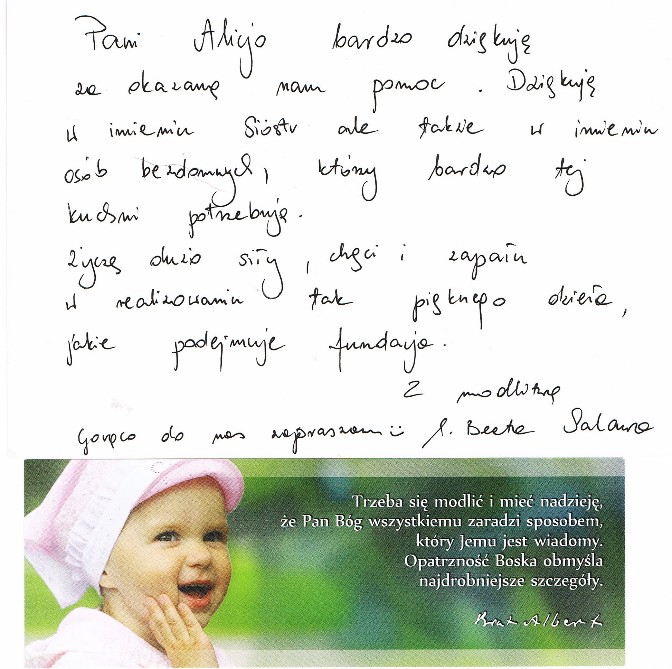 Pani Alicjo bardzo dziękuję
za okazaną nam pomoc. Dziękuję
w imieniu Sióstr ale także w imieniu
osób bezdomnych, którzy bardzo tej
kuchni potrzebują.
Życzę dużo siły, chęci i zapału
w realizowaniu tak pięknego dzieła,
jakie podejmuje fundacja.
Z modlitwą
Gorąco do nas zapraszam :) s. Beata Salawa
Trzeba się modlić i mieć nadzieję,
że Pan Bóg wszystkiemu zaradzi sposobem,
który Jemu jest wiadomy.
Opatrzność Boska obmyśla
najdrobniejsze szczegóły.
Brat Albert